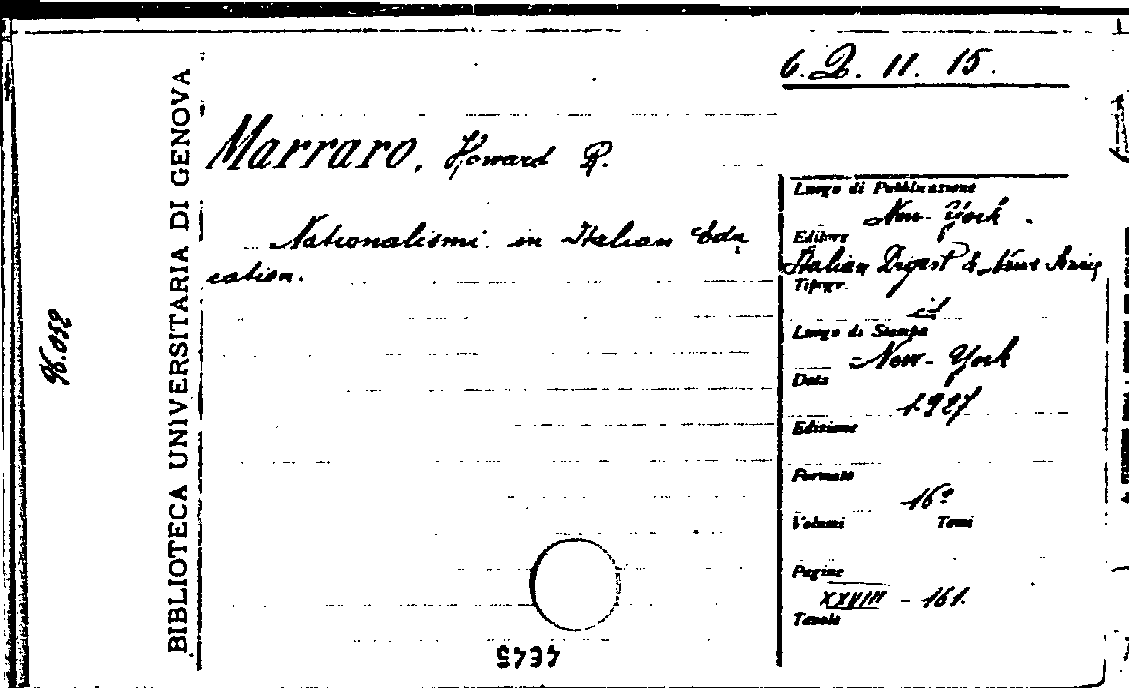 6. D. 11. 15.
BIBLIOTECA UNIVERSITARIA DI GENOVA
96.052
Marraro, Howard R.
Nationalismi in Italian Edu
cation.
Luogo di Pubblicazione
New-York.
Editore
Italian Digest & News
Tipogr.
id
Luogo di Stampa
New-York
Data
1927
Edizione
Formato
16º
Volumi Tomi
Pagine
XXVIII - 161.
Tavole
4645